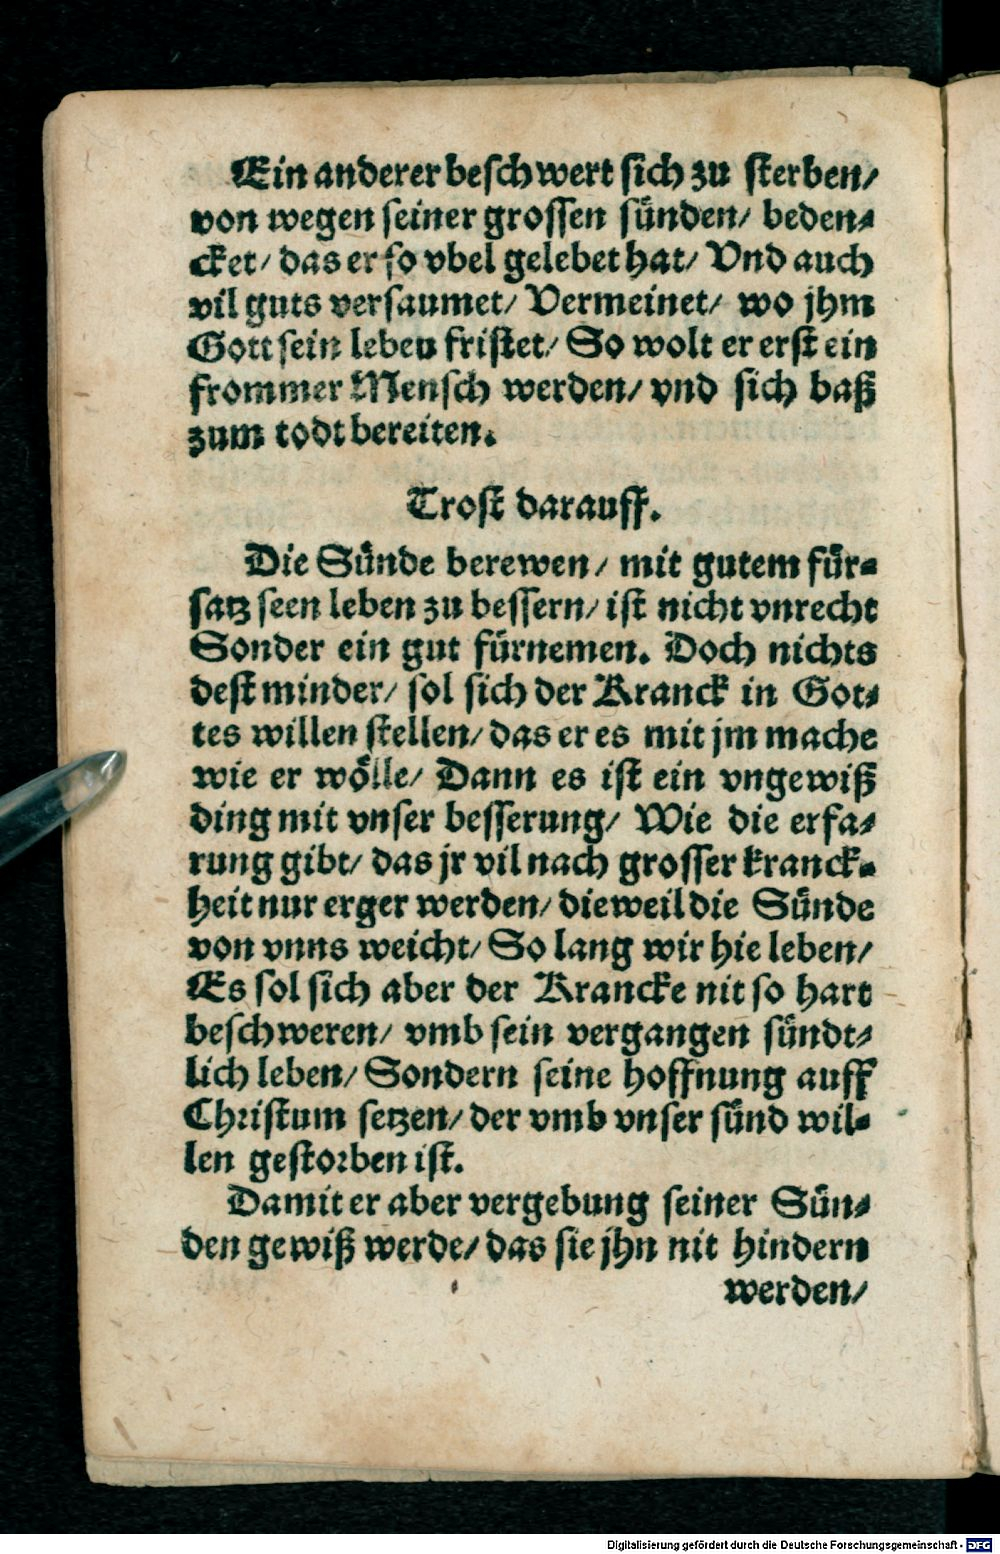 Ein anderer beschwert sich zu sterben/
von wegen seiner grossen sünden/ beden⸗
cket/ das er so vbel gelebet hat/ Vnd auch
vil guts versaumet/ Vermeinet/ wo jhm
Gott sein leben fristet/ So wolt er erst ein
frommer Mensch werden/ vnd sich baß
zum todt bereiten.
Trost darauff.
Die Sünde berewen/ mit gutem für⸗
satz seen leben zu bessern/ ist nicht vnrecht
Sonder ein gut fürnemen. Doch nichts
dest minder/ sol sich der Kranck in Got⸗
tes willen stellen/ das er es mit jm mache
wie er wölle/ Dann es ist ein vngewiß
ding mit vnser besserung/ Wie die erfa⸗
rung gibt/ das jr vil nach grosser kranck⸗
heit nur erger werden/ dieweil die Sünde
von vnns weicht/ So lang wir hie leben/
Es sol sich aber der Krancke nit so hart
beschweren/ vmb sein vergangen sündt⸗
lich leben/ Sondern seine hoffnung auff
Christum setzen/ der vmb vnser sünd wil⸗
len gestorben ist.
Damit er aber vergebung seiner Sün⸗
den gewiß werde/ das sie jhn nit hindern
werden/
Digitalisierung gefördert durch die Deutsche Forschungsgemeinschaft - DFG